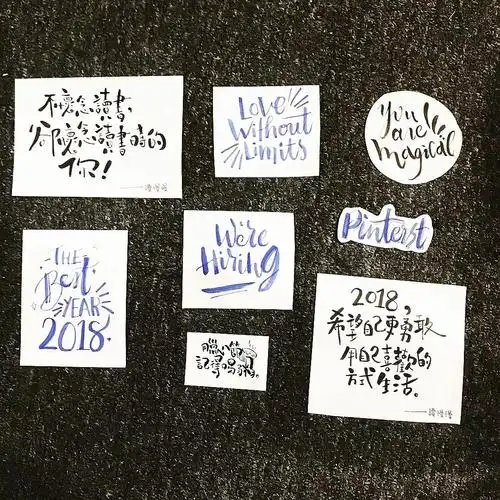 不懷念讀書,
只懷念讀書時的
你!
Love
Without
Limits
You
are
Magical
THE
Best
YEAR
2018.
We're
Hiring
Pinterst
臘八節
記得喝粥。
2018,
希望自己更勇敢
用自己喜歡的
方式生活。